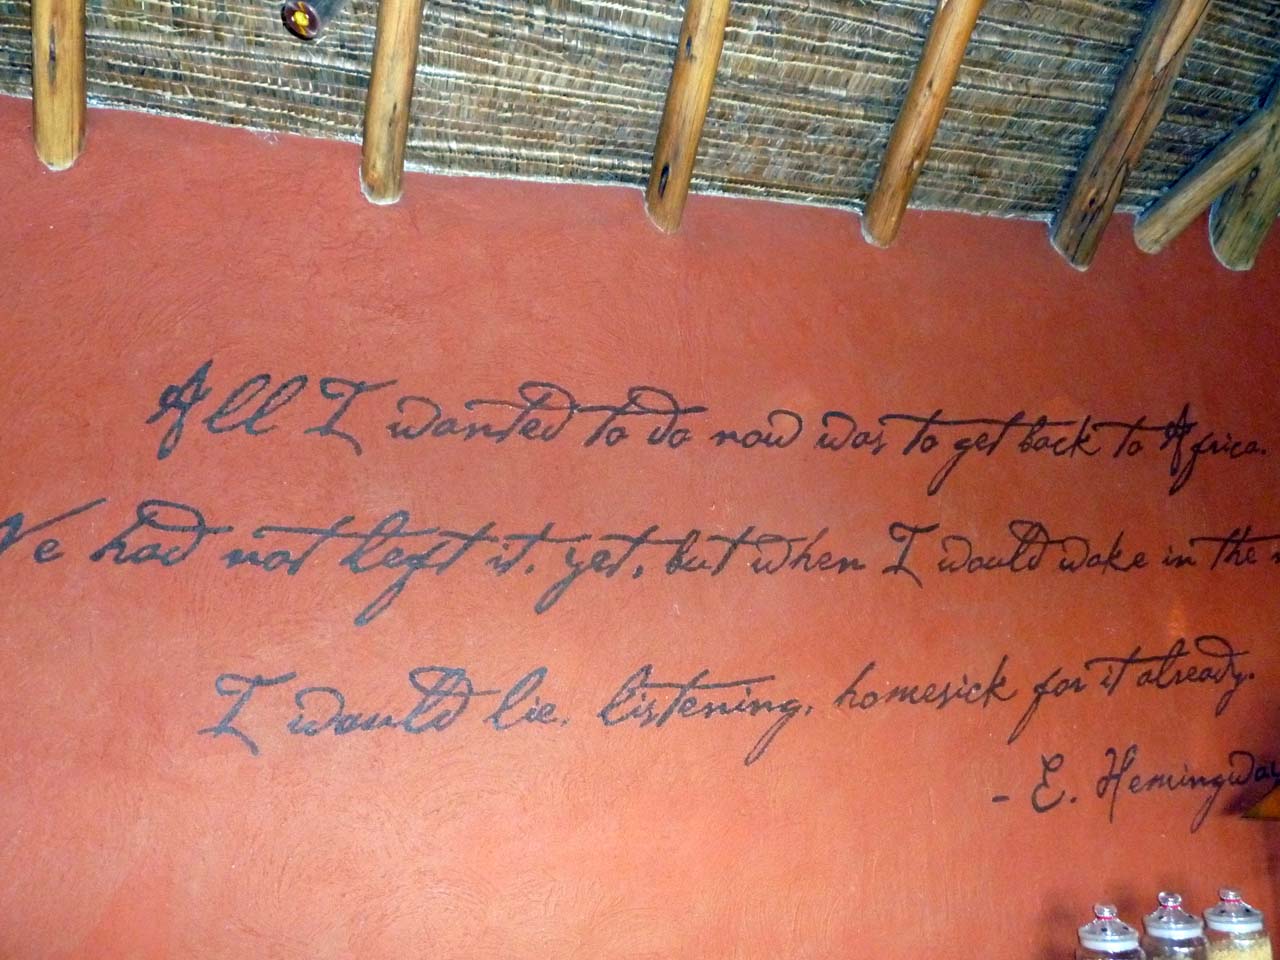 All I wanted to do now was to get back to Africa.
We had not left it, yet, but when I would wake in the
I would lie, listening, homesick for it already.
- E. Hemingway